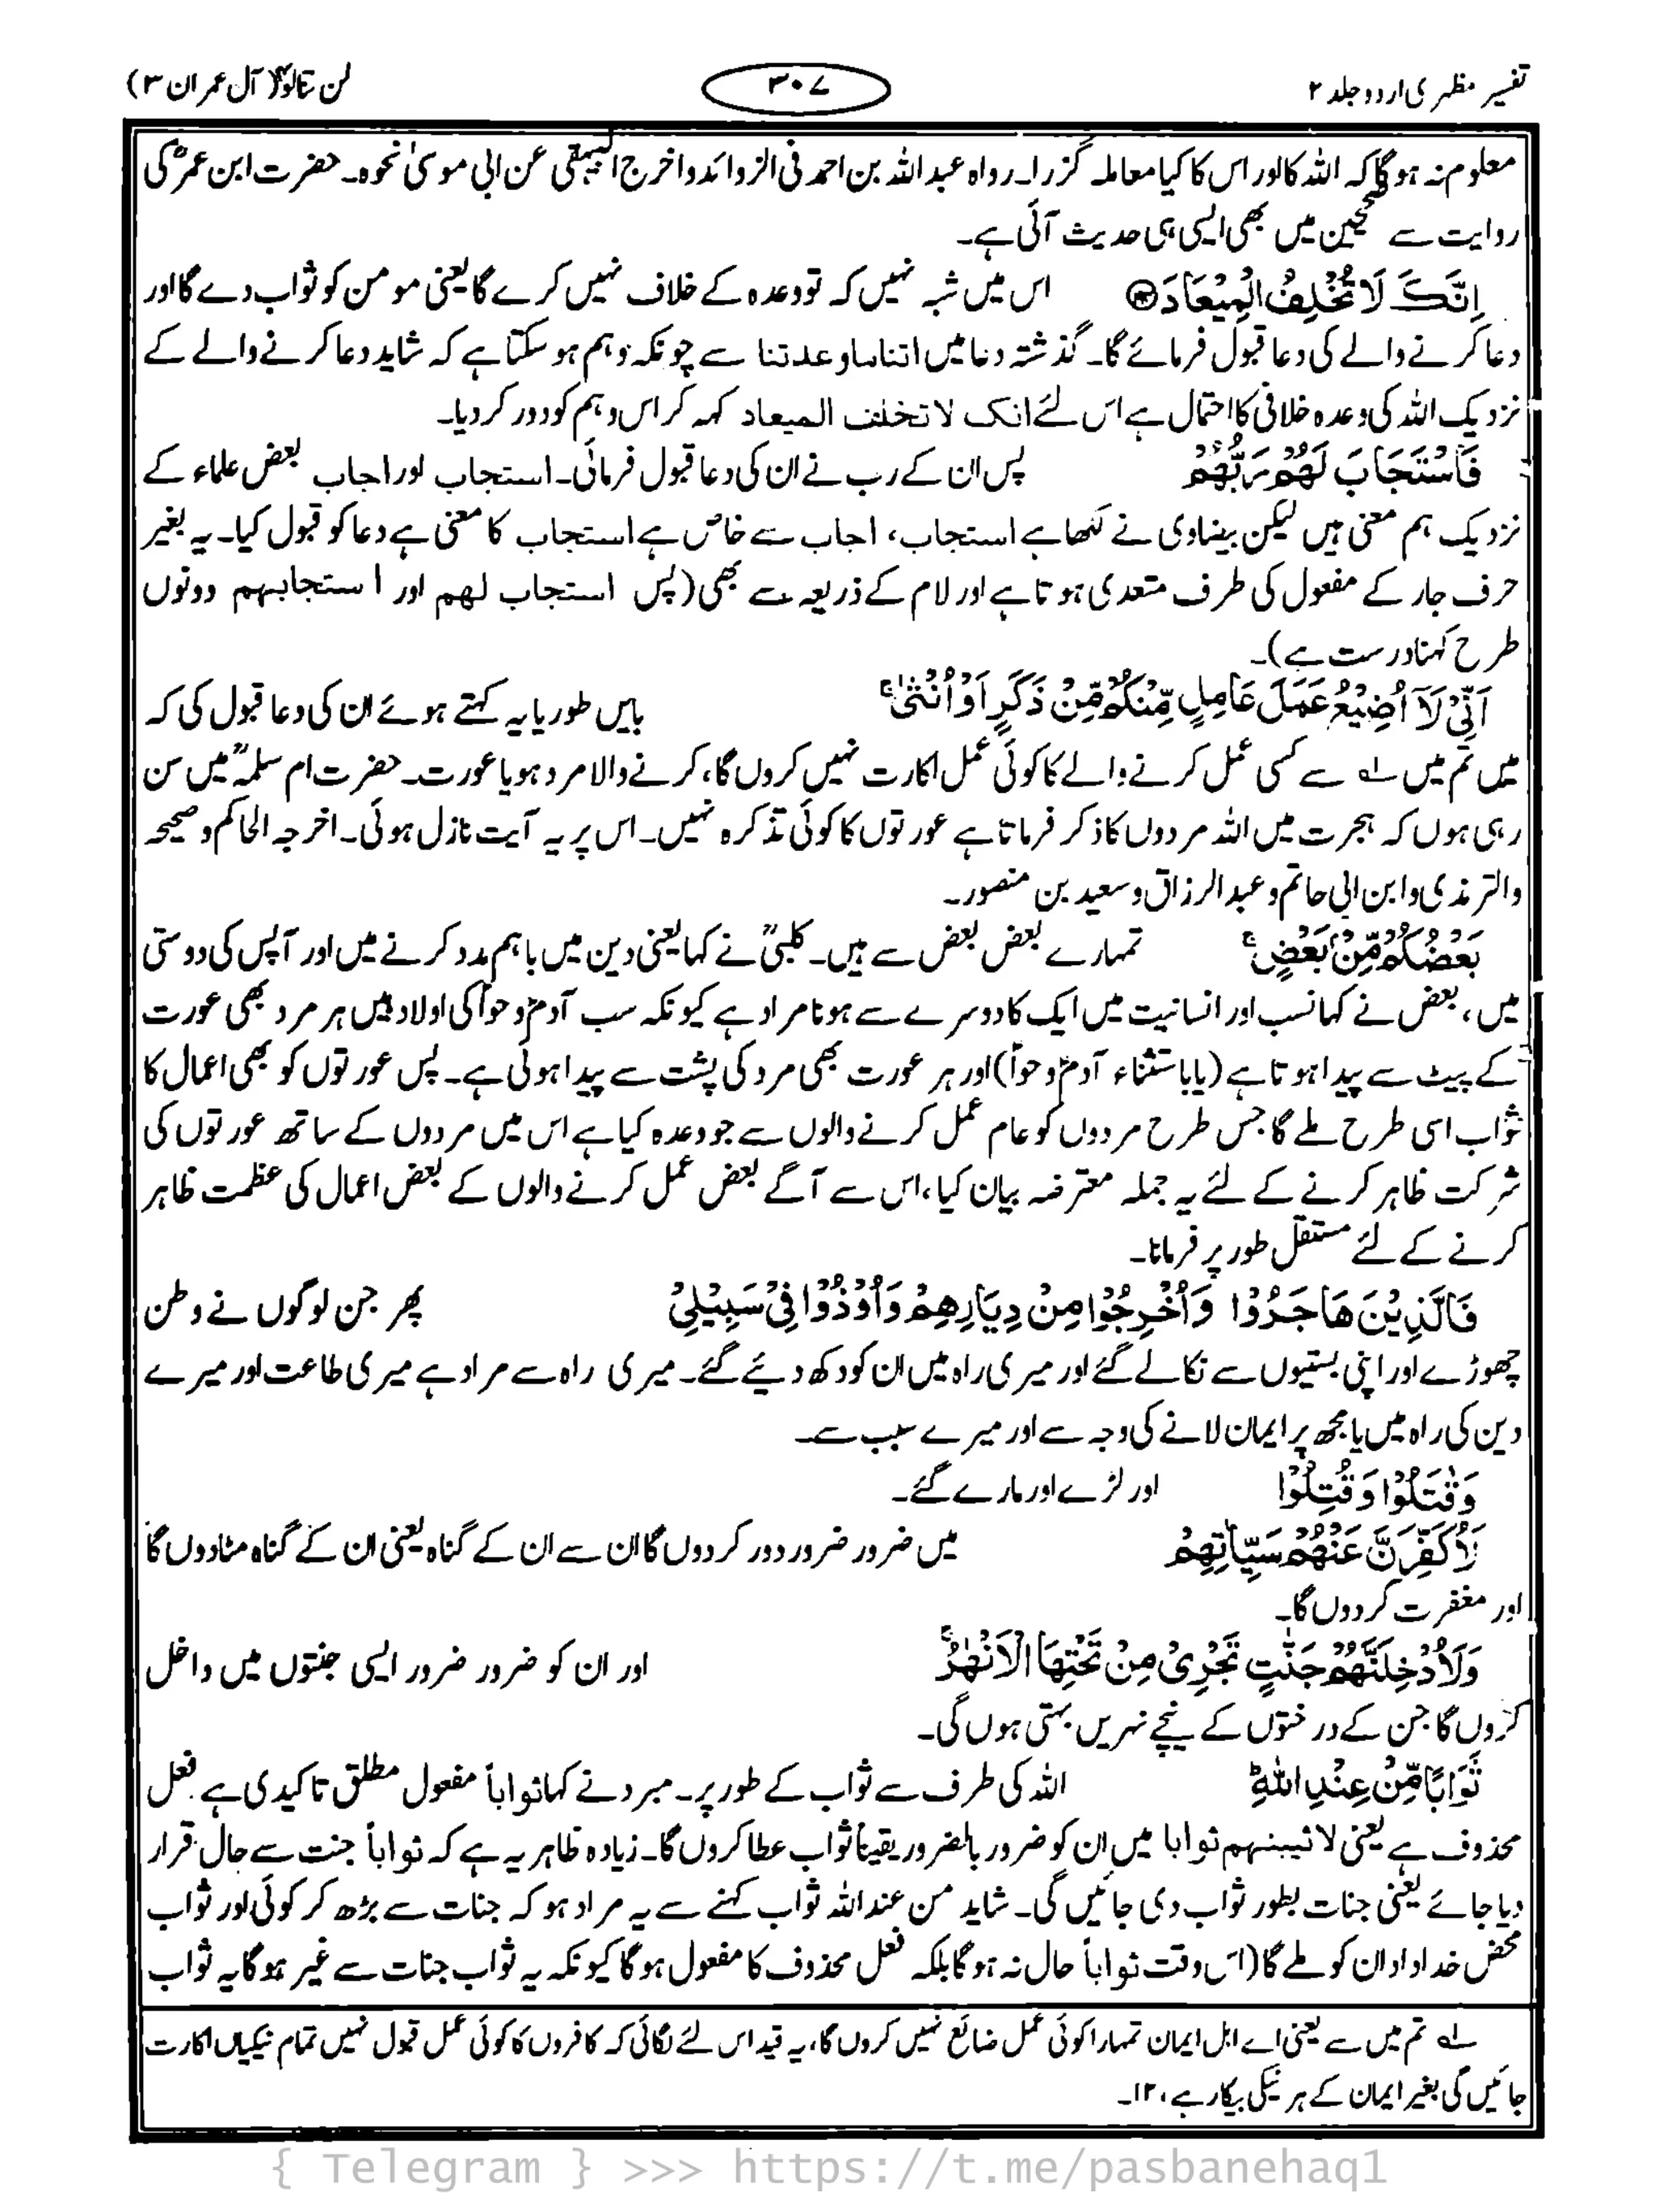 تفسیر مظہری اردو جلد ۲
۳۰۷
لن تنالوا (آل عمران ۳)
معلوم نہ ہوگا کہ اللہ کا اور اس کا کیا معاملہ گزرا۔ رواہ عبداللہ بن احمد فی الزوائد واخرج البیہقی عن ابی موسیٰ نحوہ۔ حضرت ابن عمرؓ کی
روایت سے صحیحین میں بھی ایسی ہی حدیث آئی ہے۔
اِنَّكَ لَا تُخْلِفُ الْمِيْعَادَ اس میں شبہ نہیں کہ تو وعدہ کے خلاف نہیں کرے گا یعنی مومن کو ثواب دے گا اور
دعا کرنے والے کی دعا قبول فرمائے گا۔ گذشتہ دعا میں اتنا ما وعدتنا سے چونکہ وہم ہو سکتا ہے کہ شاید دعا کرنے والے کے
نزدیک اللہ کی وعدہ خلافی کا احتمال ہے اس لئے انک لا تخلف المیعاد کہہ کر اس وہم کو دور کر دیا۔
فَاسْتَجَابَ لَهُمْ رَبُّهُمْ پس ان کے رب نے ان کی دعا قبول فرمائی۔ استجاب اور اجاب بعض علماء کے
نزدیک ہم معنی ہیں لیکن بیضاوی نے لکھا ہے استجاب، اجاب سے خاص ہے استجاب کا معنی ہے دعا کو قبول کیا۔ یہ بغیر
حرف جار کے مفعول کی طرف متعدی ہوتا ہے اور لام کے ذریعہ سے بھی (پس استجاب لھم اور استجابہم دونوں
طرح کہنا درست ہے)۔
اَنِّيْ لَآ اُضِيْعُ عَمَلَ عَامِلٍ مِّنْكُمْ مِّنْ ذَكَرٍ اَوْ اُنْثٰى ۚ بایں طور یا یہ کہتے ہوئے ان کی دعا قبول کی کہ
میں تم میں ۱؎ سے کسی عمل کرنے والے کا کوئی عمل اکارت نہیں کروں گا، کرنے والا مرد ہو یا عورت۔ حضرت ام سلمہؓ میں سن
رہی ہوں کہ ہجرت میں اللہ مردوں کا ذکر فرماتا ہے عورتوں کا کوئی تذکرہ نہیں۔ اس پر یہ آیت نازل ہوئی۔ اخرجہ الحاکم وصححہ
والترمذی وابن ابی حاتم وعبدالرزاق وسعید بن منصور۔
بَعْضُكُمْ مِّنْۢ بَعْضٍ ۚ تمہارے بعض بعض سے ہیں۔ کلبیؒ نے کہا یعنی دین میں باہم مدد کرنے میں اور آپس کی دوستی
میں، بعض نے کہا نسب اور انسانیت میں ایک کا دوسرے سے ہونا مراد ہے کیونکہ سب آدمؑ و حواؑ کی اولاد ہیں ہر مرد بھی عورت
کے پیٹ سے پیدا ہوتا ہے (باباستثناء آدمؑ و حواؑ) اور ہر عورت بھی مرد کی پشت سے پیدا ہوئی ہے۔ پس عورتوں کو بھی اعمال کا
ثواب اسی طرح ملے گا جس طرح مردوں کو عام عمل کرنے والوں سے جو وعدہ کیا ہے اس میں مردوں کے ساتھ عورتوں کی
شرکت ظاہر کرنے کے لئے یہ جملہ معترضہ بیان کیا، اس سے آگے بعض عمل کرنے والوں کے بعض اعمال کی عظمت ظاہر
کرنے کے لئے مستقل طور پر فرمایا۔
فَالَّذِيْنَ هَاجَرُوْا وَاُخْرِجُوْا مِنْ دِيَارِهِمْ وَاُوْذُوْا فِيْ سَبِيْلِيْ پھر جن لوگوں نے وطن
چھوڑے اور اپنی بستیوں سے نکالے گئے اور میری راہ میں ان کو دکھ دیئے گئے۔ میری راہ سے مراد ہے میری طاعت اور میرے
دین کی راہ میں یا مجھ پر ایمان لانے کی وجہ سے اور میرے سبب سے۔
وَقٰتَلُوْا وَقُتِلُوْا اور لڑے اور مارے گئے۔
لَاُكَفِّرَنَّ عَنْهُمْ سَيِّاٰتِهِمْ میں ضرور ضرور دور کر دوں گا ان سے ان کے گناہ یعنی ان کے گناہ مٹا دوں گا
اور مغفرت کر دوں گا۔
وَلَاُدْخِلَنَّهُمْ جَنّٰتٍ تَجْرِيْ مِنْ تَحْتِهَا الْاَنْهٰرُ ۚ اور ان کو ضرور ضرور ایسی جنتوں میں داخل
کروں گا جن کے درختوں کے نیچے نہریں بہتی ہوں گی۔
ثَوَابًا مِّنْ عِنْدِ اللّٰهِ ؕ اللہ کی طرف سے ثواب کے طور پر۔ مبرد نے کہا ثواباً مفعول مطلق تاکیدی ہے فعل
محذوف ہے یعنی لاثیبنہم ثوابا میں ان کو ضرور بالضرور یقیناً ثواب عطا کروں گا۔ زیادہ ظاہر یہ ہے کہ ثواباً جنت سے حال قرار
دیا جائے یعنی جنات بطور ثواب دی جائیں گی۔ شاید من عند اللہ ثواب کہنے سے یہ مراد ہو کہ جنات سے بڑھ کر کوئی اور ثواب
محض خداداد ان کو ملے گا (اس وقت ثواباً حال نہ ہوگا بلکہ فعل محذوف کا مفعول ہوگا کیونکہ یہ ثواب جنات سے غیر ہوگا یہ ثواب
۱؎ تم میں سے یعنی اے اہل ایمان تمہارا کوئی عمل ضائع نہیں کروں گا، یہ قید اس لئے لگائی کہ کافروں کا کوئی عمل قبول نہیں تمام نیکیاں اکارت
جائیں گی بغیر ایمان کے ہر نیکی بیکار ہے، ۱۲۔
{ Telegram } >>> https://t.me/pasbanehaq1